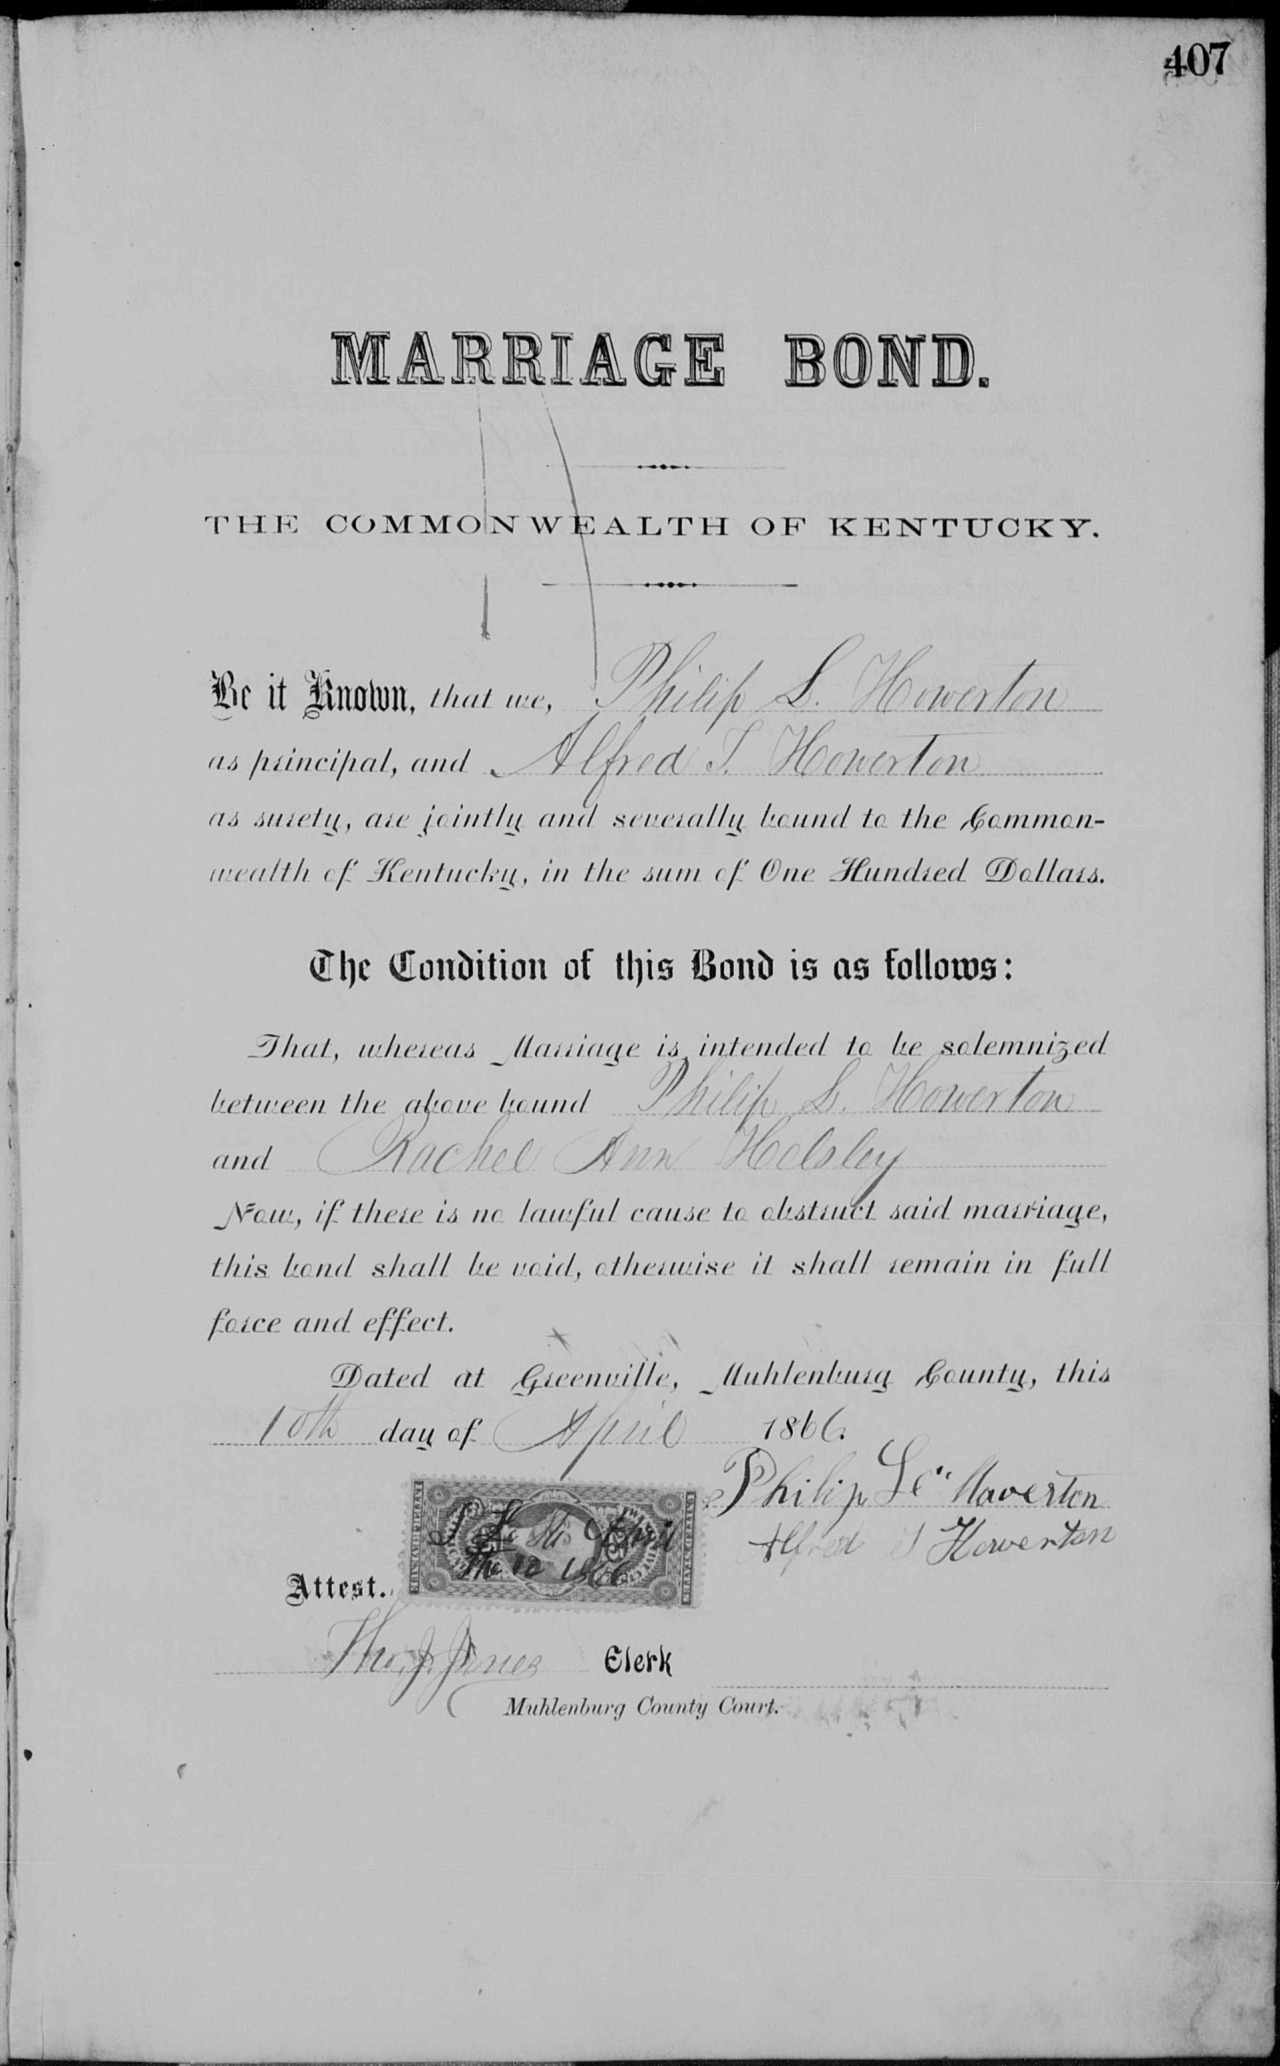 407
MARRIAGE BOND.
THE COMMONWEALTH OF KENTUCKY.
Be it Known, that we, Philip L. Howerton
as principal, and Alfred T. Howerton
as surety, are jointly and severally bound to the Common-
wealth of Kentucky, in the sum of One Hundred Dollars.
The Condition of this Bond is as follows:
That, whereas Marriage is intended to be solemnized
between the above bound Philip L. Howerton
and Rachel Ann Helsley
Now, if there is no lawful cause to obstruct said marriage,
this bond shall be void, otherwise it shall remain in full
force and effect.
Dated at Greenville, Muhlenburg County, this
10th day of April 1866.
Philip Howerton
Alfred T Howerton
April
the 10 1866
Attest.
Tho. J. Jones Clerk
Muhlenburg County Court.